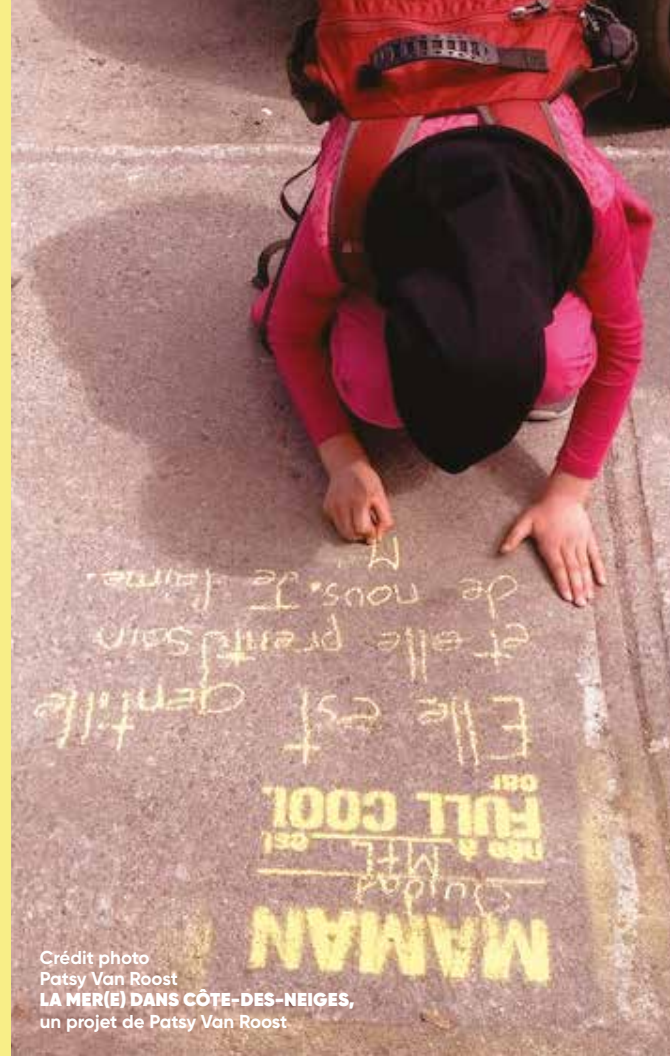 MAMAN
Ouidad
née à MTL est
FULL COOL
car
Elle est gentille
et elle prent soin
de nous. Je l'aime.
M
Crédit photo
Patsy Van Roost
LA MER(E) DANS CÔTE-DES-NEIGES,
un projet de Patsy Van Roost